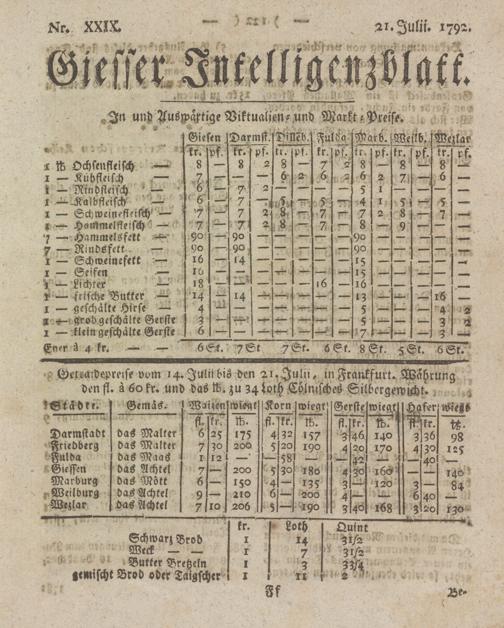 Nr. XXIX. — ) 112 ( — 21. Julii. 1792.
Giesser Intelligenzblatt.
In und Auspärtige Viktualien- und Markt-Preise.
Giesen Darmst. Fulda Marb. Weilb. Wezlar
kr. pf. kr. pf. kr. pf. kr. pf. kr. pf. kr. pf. kr. pf.
1 ℔ Ochsenfleisch — 8 — 8 2 8 — 7 — 8 — 8 — 8 —
1 — Kühfleisch — 7 — — — 6 2 6 2 6 2 7 — 6 —
1 — Rindfleisch — 6 — 7 2 — — — — 5 1 — — — —
1 — Kalbfleisch
1 — Schweinefleisch — 7 — 7 2 8 — 7 — 7 2 8 — 7 —
1 — Hammelfleisch — 7 — 7 2 8 — 7 — 8 — 9 — — —
7 — Hammelsfett — 90 — 90 — — — — — 90 — — — — —
7 — Rindsfett — 90 — 90 — — — — — 90 — — — — —
1 — Schweinefett — 16 — 14 — — — — — 15 — — — — —
1 — Seifen — 16 — — — — — — — 15 — — — — —
1 — Lichter — 18 — — — — — 16 — 16 — — — — —
1 — frische Butter — 14 — 14 — — — — — 13 — — — 16 —
1 — geschälte Hirse — 4
1 — grob geschälte Gerste
1 — klein geschälte Gerste
Eyer à 4 kr. — — 6 St. 7 St. 7 St. 6 St. 8 St. 5 St. 6 St.
Getraidepreise vom 14. Julii bis den 21. Julii, in Frankfurt. Währung
den fl. à 60 kr. und das ℔. zu 34 Loth Cölnisches Silbergewicht.
Städte. Gemäs. Waizen wiegt Korn wiegt Gerste wiegt Hafer wiegt
fl. kr. ℔. fl. kr. ℔. fl. kr. ℔. fl. kr. ℔.
Darmstadt das Malter 6 25 175 4 32 157 3 46 140 3 36 98
Friedberg das Malter 7 30 200 5 20 190 4 20 170 4 30 125
Fulda das Maas 1 12 — — 58 — — 42 — — 40 —
Giessen das Achtel 7 — 200 5 30 180 4 30 160 — — 140
Marburg das Mött 6 — 150 4 — 135 3 — 120 3 — 84
Weilburg das Achtel 9 — 210 6 — 200 — — — 6 40 —
Wezlar das Achtel 7 10 206 5 — 190 3 40 168 3 20 130
kr. Loth Quint
Schwarz Brod 1 14 3 1/2
Weck — — 1 7 3 1/2
Butter Bretzeln 1 3 3 3/4
gemischt Brod oder Taigscher 1 11 2
Ff Be-